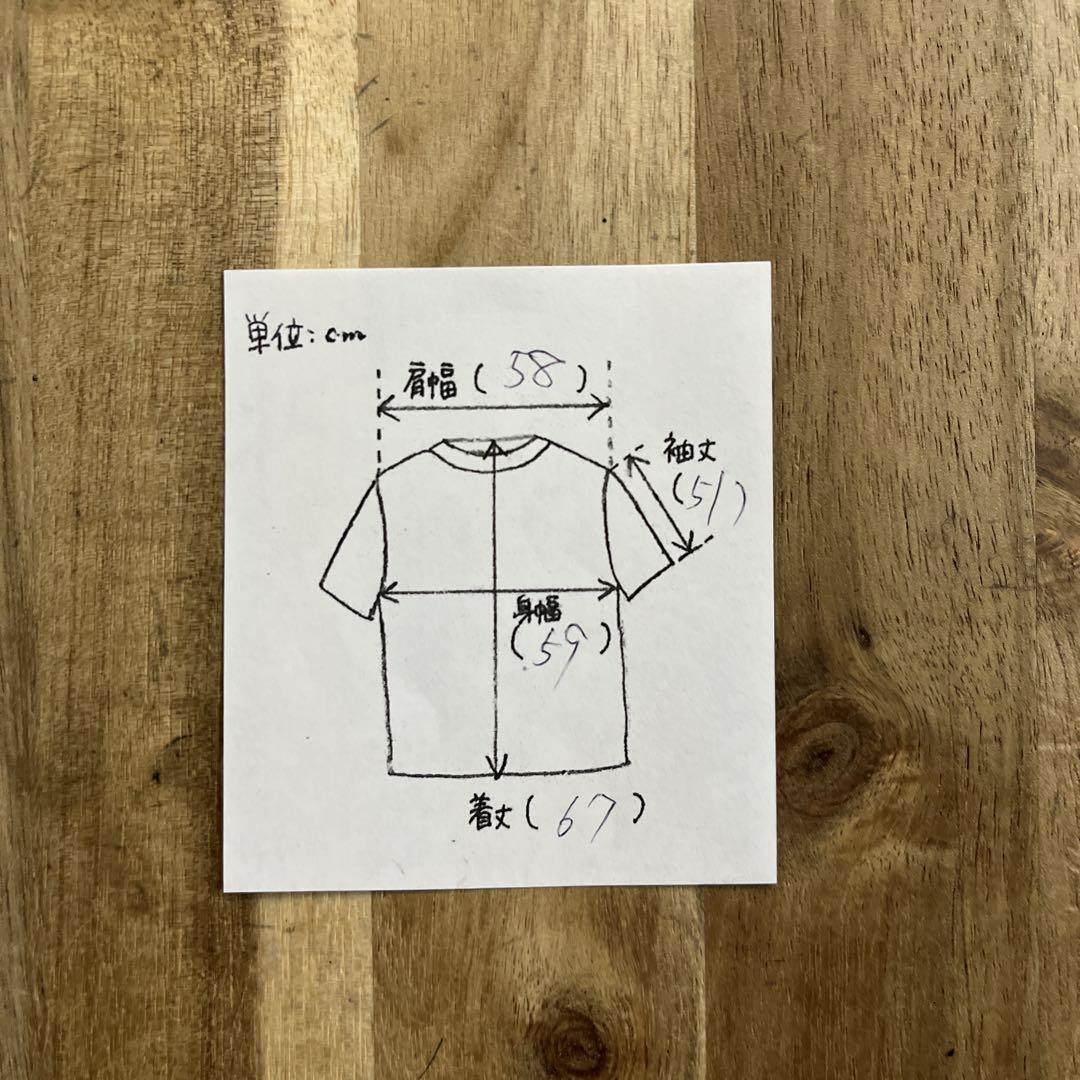 単位:cm
肩幅(58)
袖丈
(51)
身幅
(59)
着丈(67)